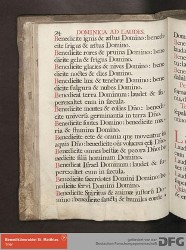 DOMINICA AD LAUDES.
Benedicite ignis & æstus Domino: bene
dicite frigus & æstus Domino.
Benedicite rores & pruina Domino: bene
dicite gelu & frigus Domino.
Benedicite glacies & nives Domino: bene
dicite noctes & dies Domino.
Benedicite lux & tenebræ Domino: bene
dicite fulgura & nubes Domino.
Benedicat terra Dominum: laudet & su
perexaltet eum in sæcula.
Benedicite montes & colles Domino: bene
dicite universa germinantia in terra Domino.
Benedicite fontes Domino: benedicite ma
ria & flumina Domino.
Benedicite cete & omnia quæ moventur in
aquis Domino: benedicite omnes volucres cœli Domino.
Benedicite omnes bestiæ & pecora Domino: be
nedicite filii hominum Domino.
Benedicat Israel Dominum: laudet & su
perexaltet eum in sæcula.
Benedicite sacerdotes Domini Domino: be
nedicite servi Domini Domino.
Benedicite Spiritus & animæ justorum Do
mino: benedicite sancti & humiles corde
DFG